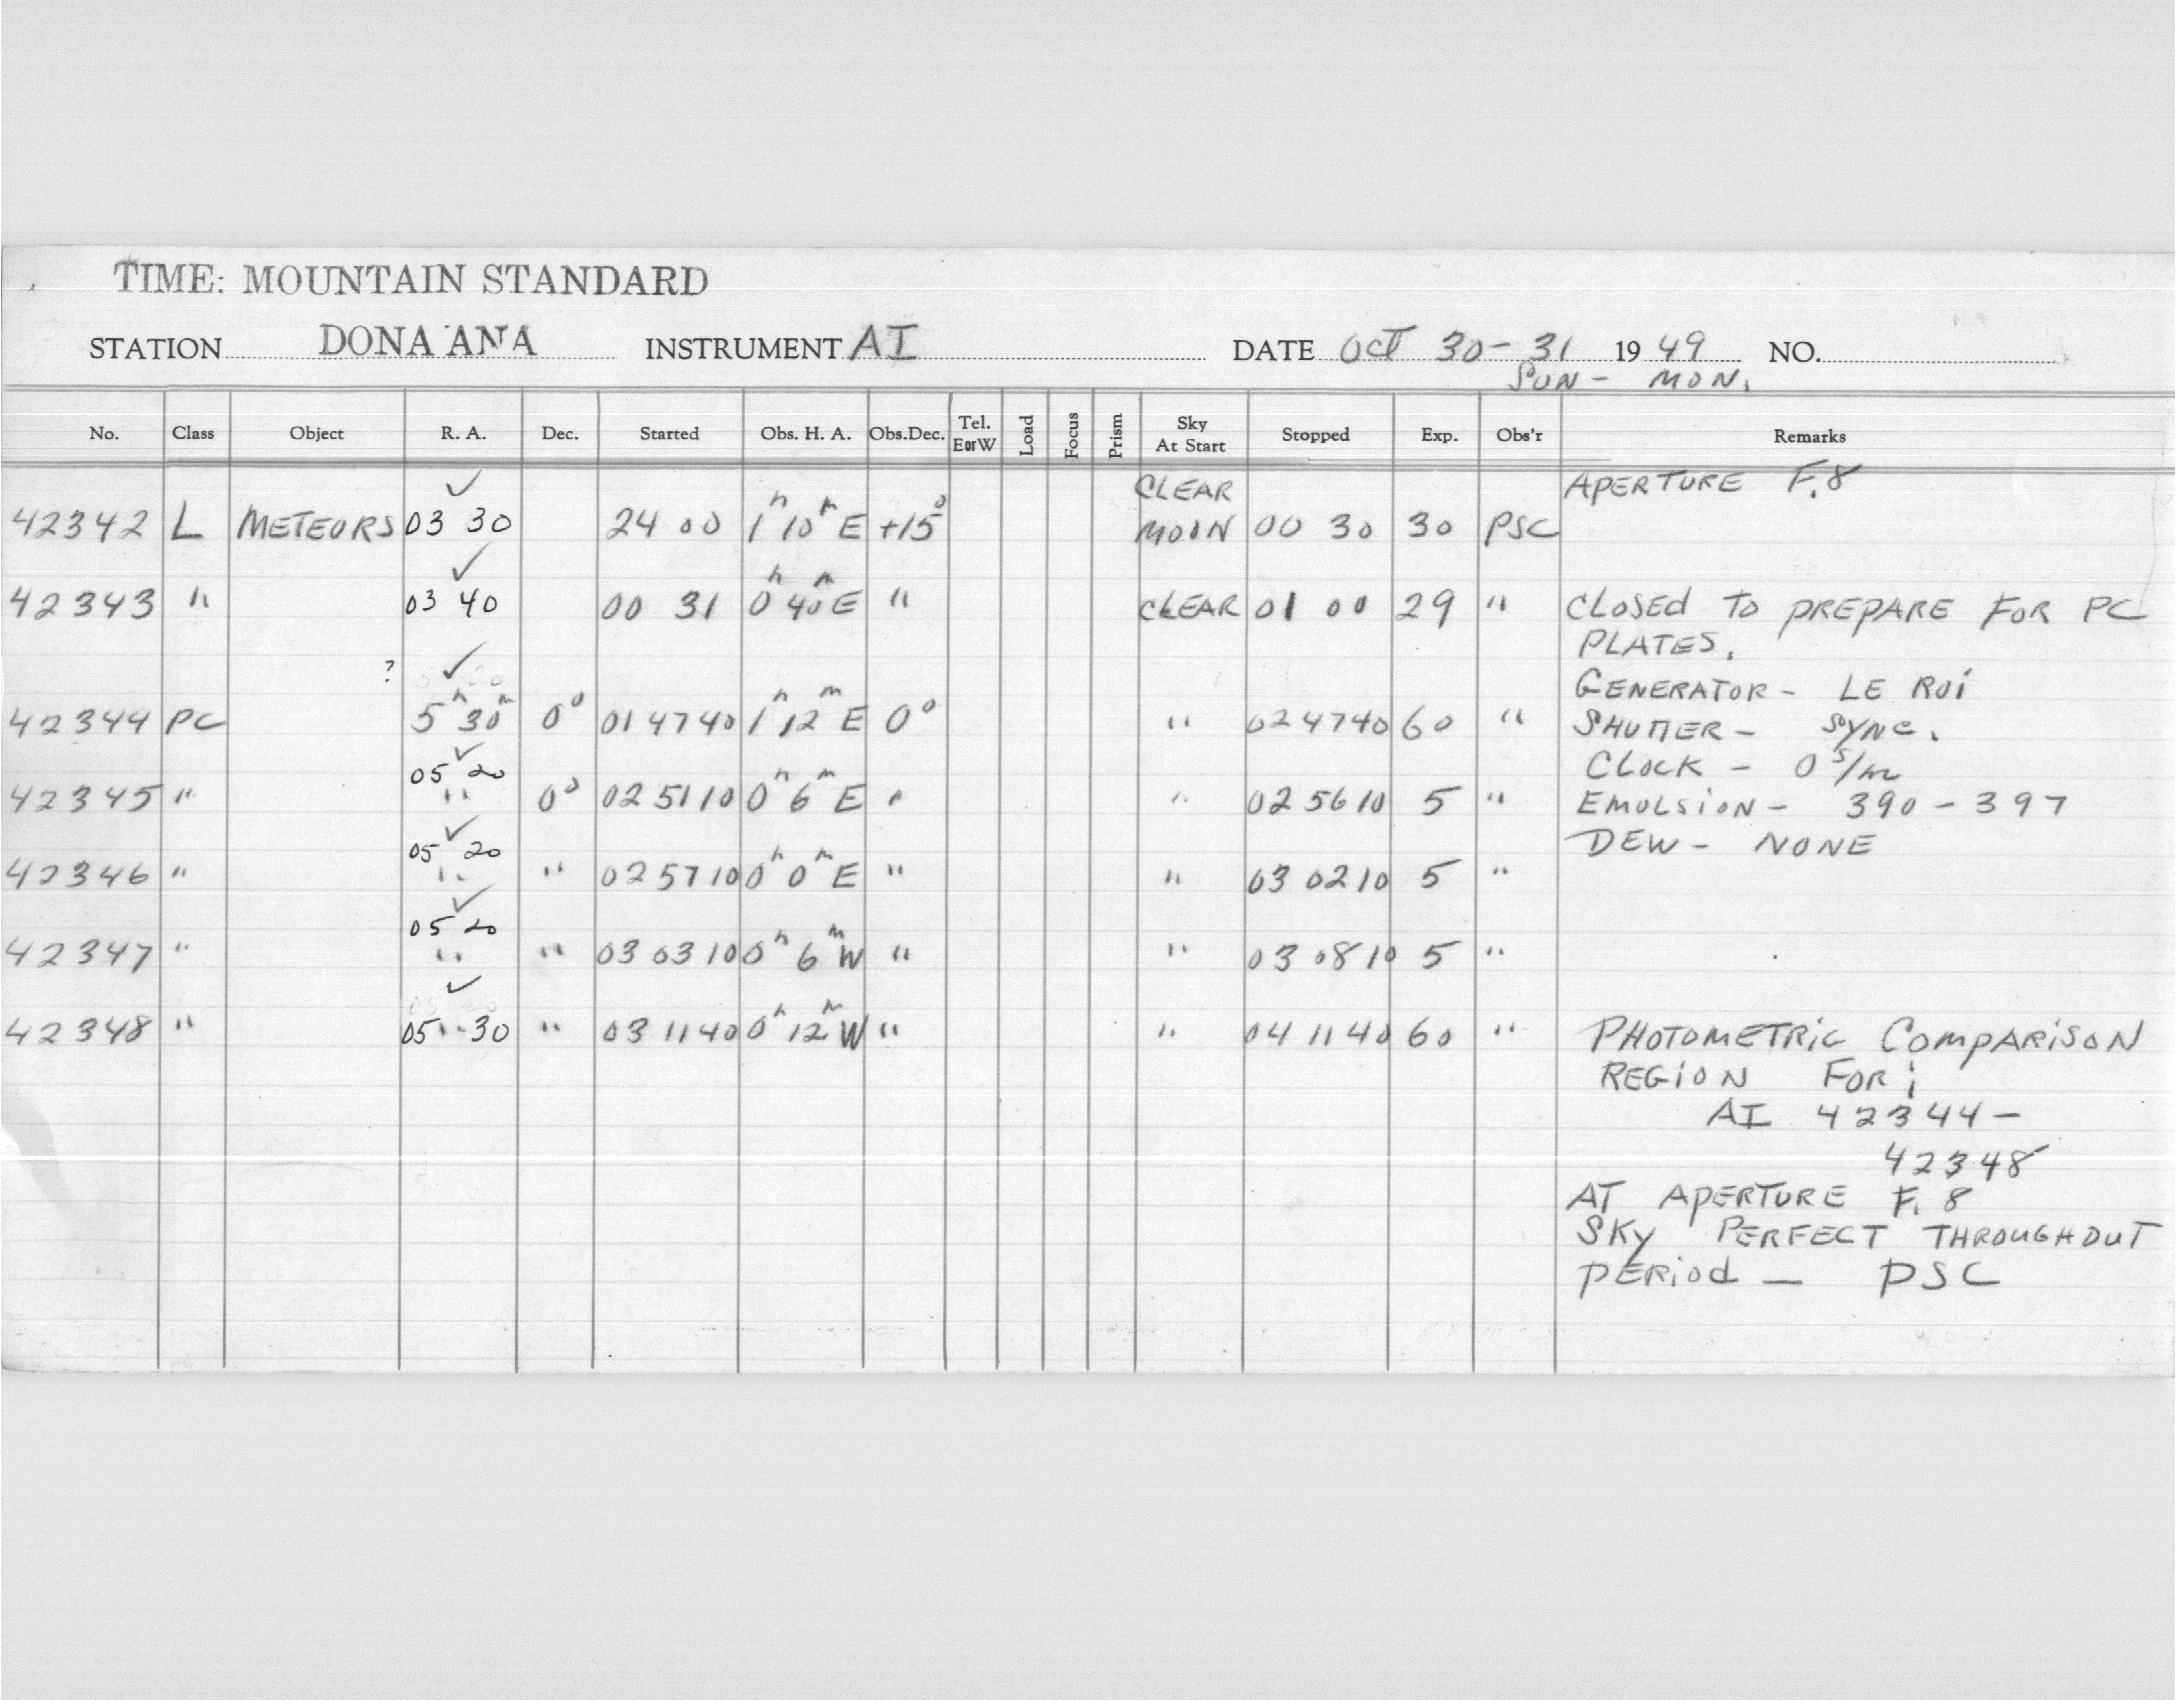 TIME: MOUNTAIN STANDARD
STATION DONA ANA INSTRUMENT AI DATE OCT 30 - 31 1949 NO.
SUN - MON.
No. Class Object R. A. Dec. Started Obs. H. A. Obs.Dec. Tel. E or W Load Focus Prism Sky At Start Stopped Exp. Obs'r Remarks
✓ CLEAR APERTURE F.8
42342 L METEORS 03 30 24 00 1h 10m E +15° MOON 00 30 30 PSC
✓
42343 " 03 40 00 31 0h 40m E " CLEAR 01 00 29 " CLOSED TO PREPARE FOR PC
PLATES.
? ✓ GENERATOR - LE ROI
42344 PC 5h 30m 0° 01 47 40 1h 12m E 0° " 02 47 40 60 " SHUTTER - SYNC.
✓
05 20 CLOCK - 0 s/m
42345 " " 0° 02 51 10 0h 6m E " " 02 56 10 5 " EMULSION - 390 - 397
✓
05 20 DEW - NONE
42346 " " " 02 57 10 0h 0m E " " 03 02 10 5 "
✓
05 20
42347 " " " 03 03 10 0h 6m W " " 03 08 10 5 "
✓
42348 " 05 " 30 " 03 11 40 0h 12m W " " 04 11 40 60 " PHOTOMETRIC COMPARISON
REGION FOR;
AI 42344 -
42348
AT APERTURE F.8
SKY PERFECT THROUGHOUT
PERIOD — PSC